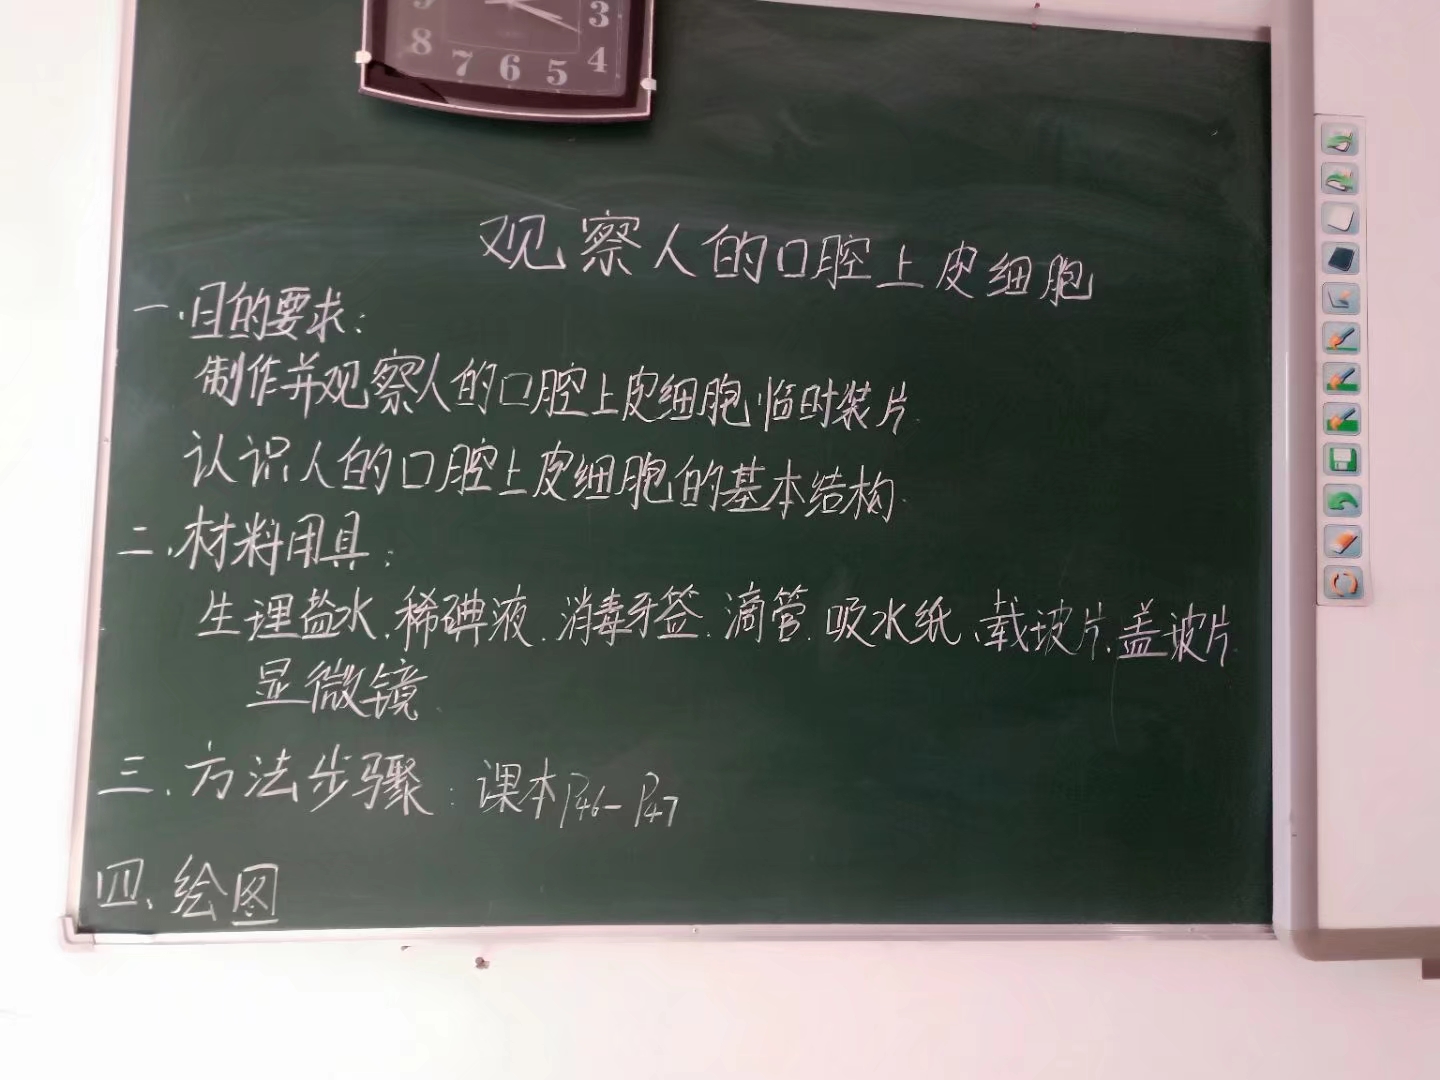 9 3
8 7 6 5 4
观察人的口腔上皮细胞
一.目的要求:
制作并观察人的口腔上皮细胞临时装片.
认识人的口腔上皮细胞的基本结构.
二.材料用具:
生理盐水.稀碘液.消毒牙签.滴管.吸水纸、载玻片.盖玻片.
显微镜.
三.方法步骤:课本P46-P47
四、绘图